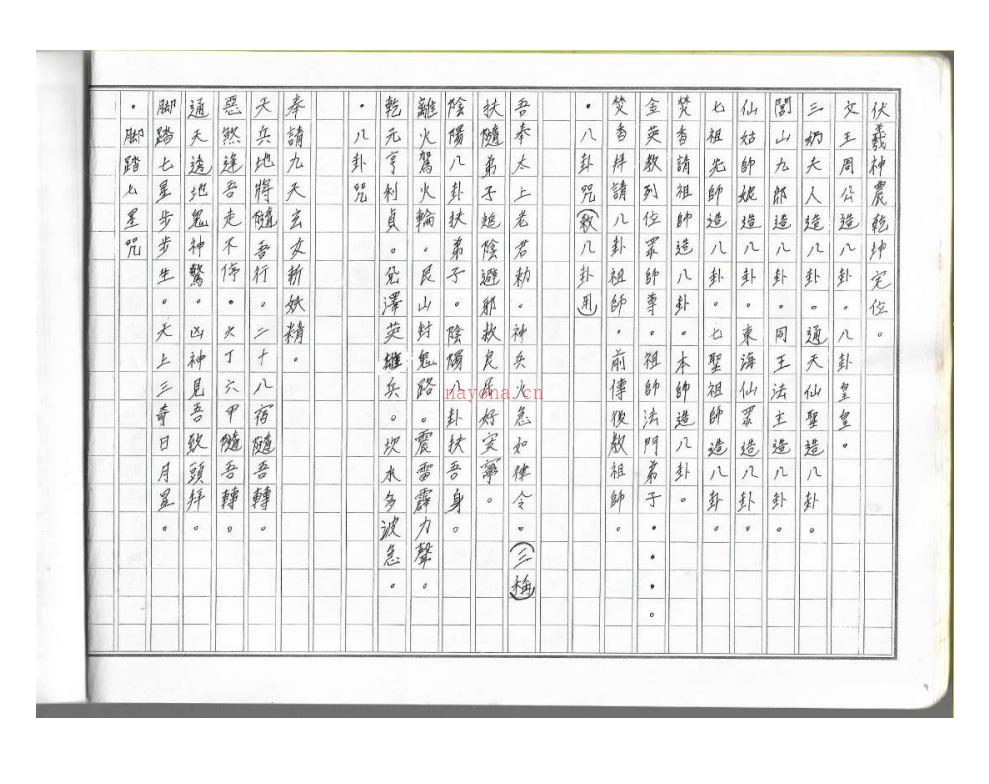 伏羲神農乾坤定位。
文王周公造八卦。八卦皇皇。
三奶夫人造八卦。通天仙聖造八卦。
閭山九郎造八卦。同王法主造八卦。
仙姑師娘造八卦。東海仙眾造八卦。
七祖先師造八卦。七聖祖師造八卦。
焚香請祖師造八卦。本師造八卦。
金英教列位眾師尊。祖師法門弟子....。
焚香拜請八卦祖師。前傳後教祖師。
・八卦咒(敕八卦用)
吾奉太上老君勅。神兵火急如律令。(三稱)
扶隨弟子追陰避邪救良民好安寧。
陰陽八卦扶弟子。陰陽八卦扶吾身。
離火駕火輪。艮山封鬼路。震雷霹力聲。
乾元亨利貞。兌澤英雄兵。坎水多波急。
・八卦咒
奉請九天玄女斬妖精。
天兵地將隨吾行。二十八宿隨吾轉。
惡煞逢吾走不停。火丁六甲隨吾轉。
通天透地鬼神驚。凶神見吾致頭拜。
脚踏七星步步生。天上三奇日月星。
・脚踏七星咒
nayona.cn